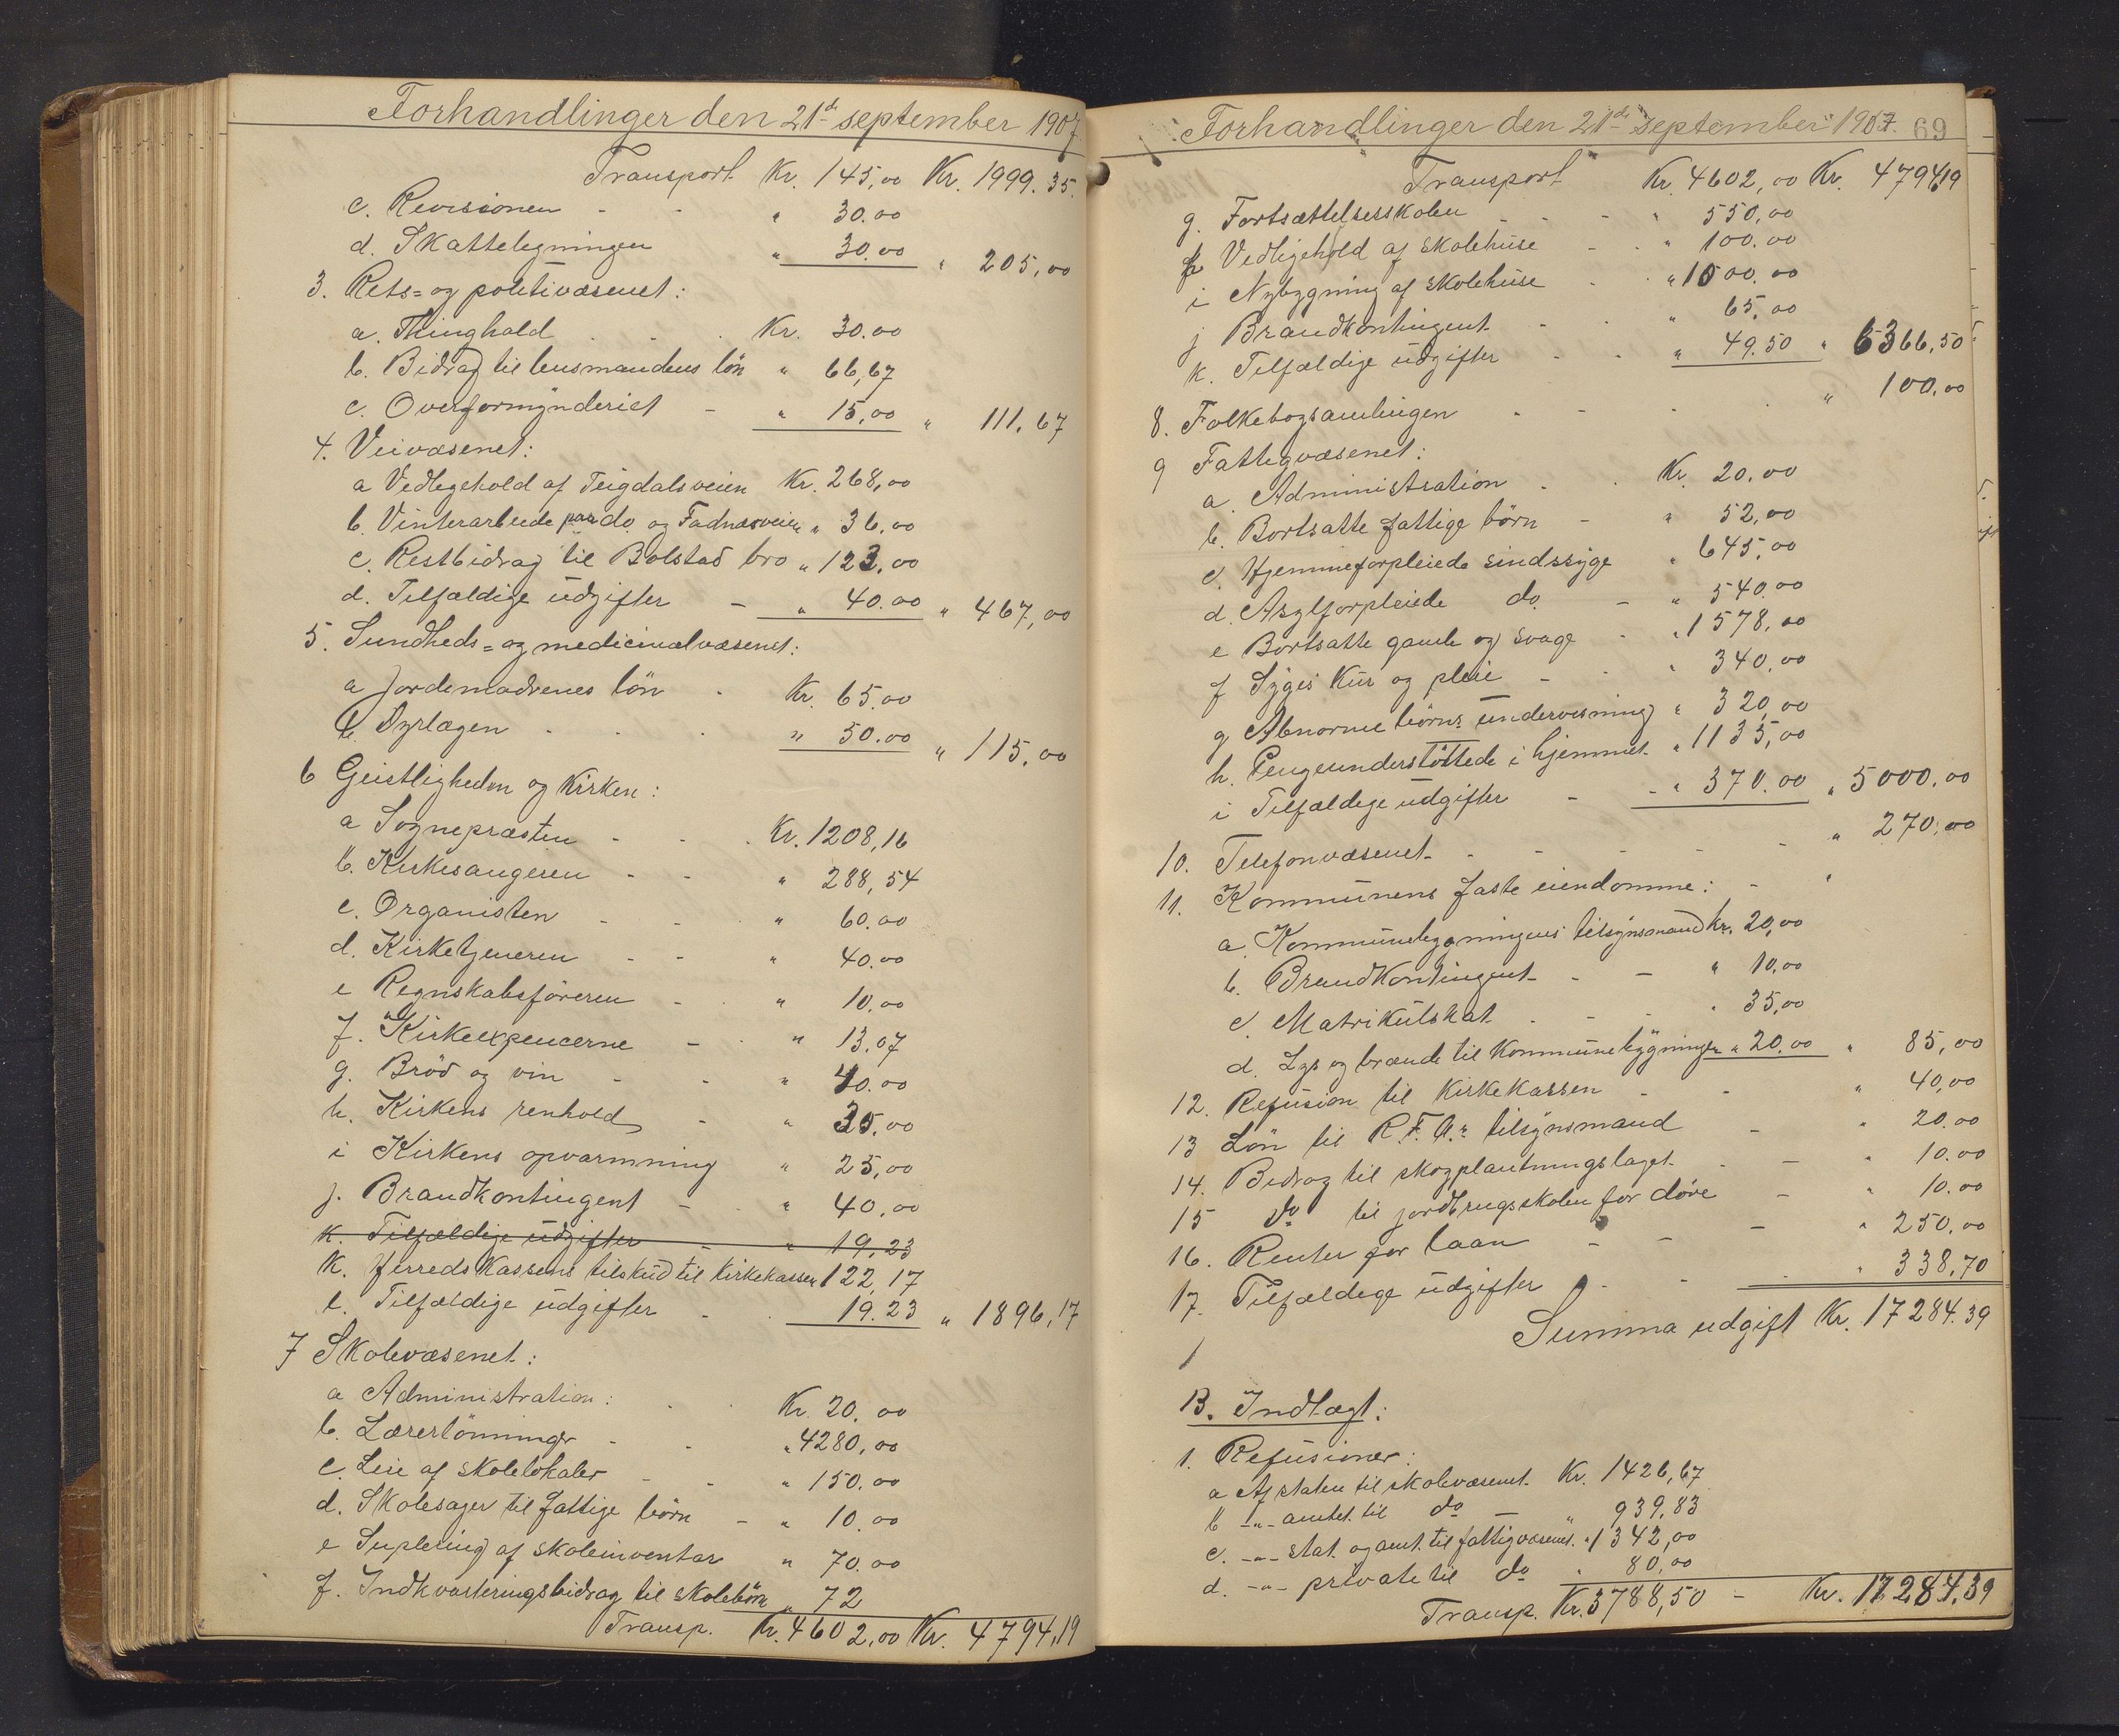 Forhandlinger den 21de september 1907.
Transport Kr. 145,00 Kr. 1999.35.
c. Revisionen - - " 30.00
d. Skatteligningen " 30.00 " 205,00
3. Rets= og politivæsenet:
a. Thinghold . . . Kr. 30.00
b. Bidrag til lensmandens løn " 66,67
c. Overformynderiet - " 15,00 " 111.67
4. Veivæsenet:
a Vedligehold af Teigdalsveien Kr. 268,00
b. Vinterarbeide paa do og Fadnæsveien " 36.00
c. Restbidrag til Bolstad bro " 123.00
d. Tilfældige udgifter - " 40.00 " 467,00
5. Sundheds= og medicinalvæsenet:
a Jordemødrenes løn - Kr. 65.00
b. Dyrlægen . . . " 50.00 " 115.00
6 Geistligheden og Kirken:
a Sognepræsten - - . Kr. 1208,16
b. Kirkesangeren - - " 288,54
c. Organisten - - " 60.00
d. Kirketjeneren - - " 40.00
e Regnskabsføreren - . " 10.00
f. Kirkeexpencerne - . " 13.07
g. Brød og vin - - " 40.00
h. Kirkens renhold - " 35.00
i Kirkens opvarmning " 25,00
j. Brandkontingent - . " 40.00
k. Tilfældige udgifter - " 19.23
k. Herredskassens tilskud til kirkekassen 122,17
l. Tilfældige udgifter - . 19.23 " 1896,17
7 Skolevæsenet:
a Administration: . . Kr. 20.00
b. Lærerlønninger - - " 4280,00
c. Leie af skolelokaler - - " 150.00
d. Skolesager til fattige børn - " 10.00
e Suplering af skoleinventar " 70.00
f. Indkvarteringsbidrag til skolebørn " 72
Transp. Kr. 4602,00 Kr. 4794,19
Forhandlinger den 21de september 1907. 69
Transport Kr. 4602,00 Kr. 4794,19
g. Fortsættelsesskolen - - - " 550,00
h Vedligehold af skolehuse - . " 100.00
i Nybygning af skolehuse . . " 1500.00
j Brandkontingent - . " 65,00
k. Tilfældige udgifter - . " 49.50 " 6366,50
8. Folkebogsamlingen . - . . " 100,00
9 Fattigvæsenet:
a. Administration . . Kr. 20.00
b. Bortsatte fattige børn - " 52,00
c. Hjemmeforpleiede sindssyge " 645,00
d. Asylforpleiede do. - " 540.00
e Bortsatte gamle og svage - " 1578,00
f Syges kur og pleie - . " 340,00
g Abnorme børns undervisning " 320,00
h. Pengeunderstøttede i hjemmet " 1135,00
i Tilfældige udgifter - - " 370.00 " 5000.00
10. Telefonvæsenet - - - - - " 270,00
11. Kommunens faste eiendomme: - "
a. Kommunebygningens tilsynsmand kr. 20,00
b. Brandkontingent - - " 10,00
c. Matrikulskat . - . " 35,00
d. Lys og brænde til kommunebygningen " 20.00 " 85,00
12. Refusion til kirkekassen - - " 40,00
13 Løn til R.F.A.s tilsynsmand - " 20.00
14. Bidrag til skogplantningslaget . - " 10.00
15 do til jordbrugsskolen for døve - " 10.00
16. Renter for laan - - - " 250,00
17. Tilfældige udgifter . - . " 338.70
Summa udgift Kr. 17284.39
B. Indtægt:
1. Refusioner:
a Af staten til skolevæsenet Kr. 1426,67
b -"- amtet til do - " 939,83
c. -"- stat og amt til fattigvæsenet " 1342,00
d. -"- private til do " 80,00
Transp. Kr. 3788,50 - Kr. 17284.39